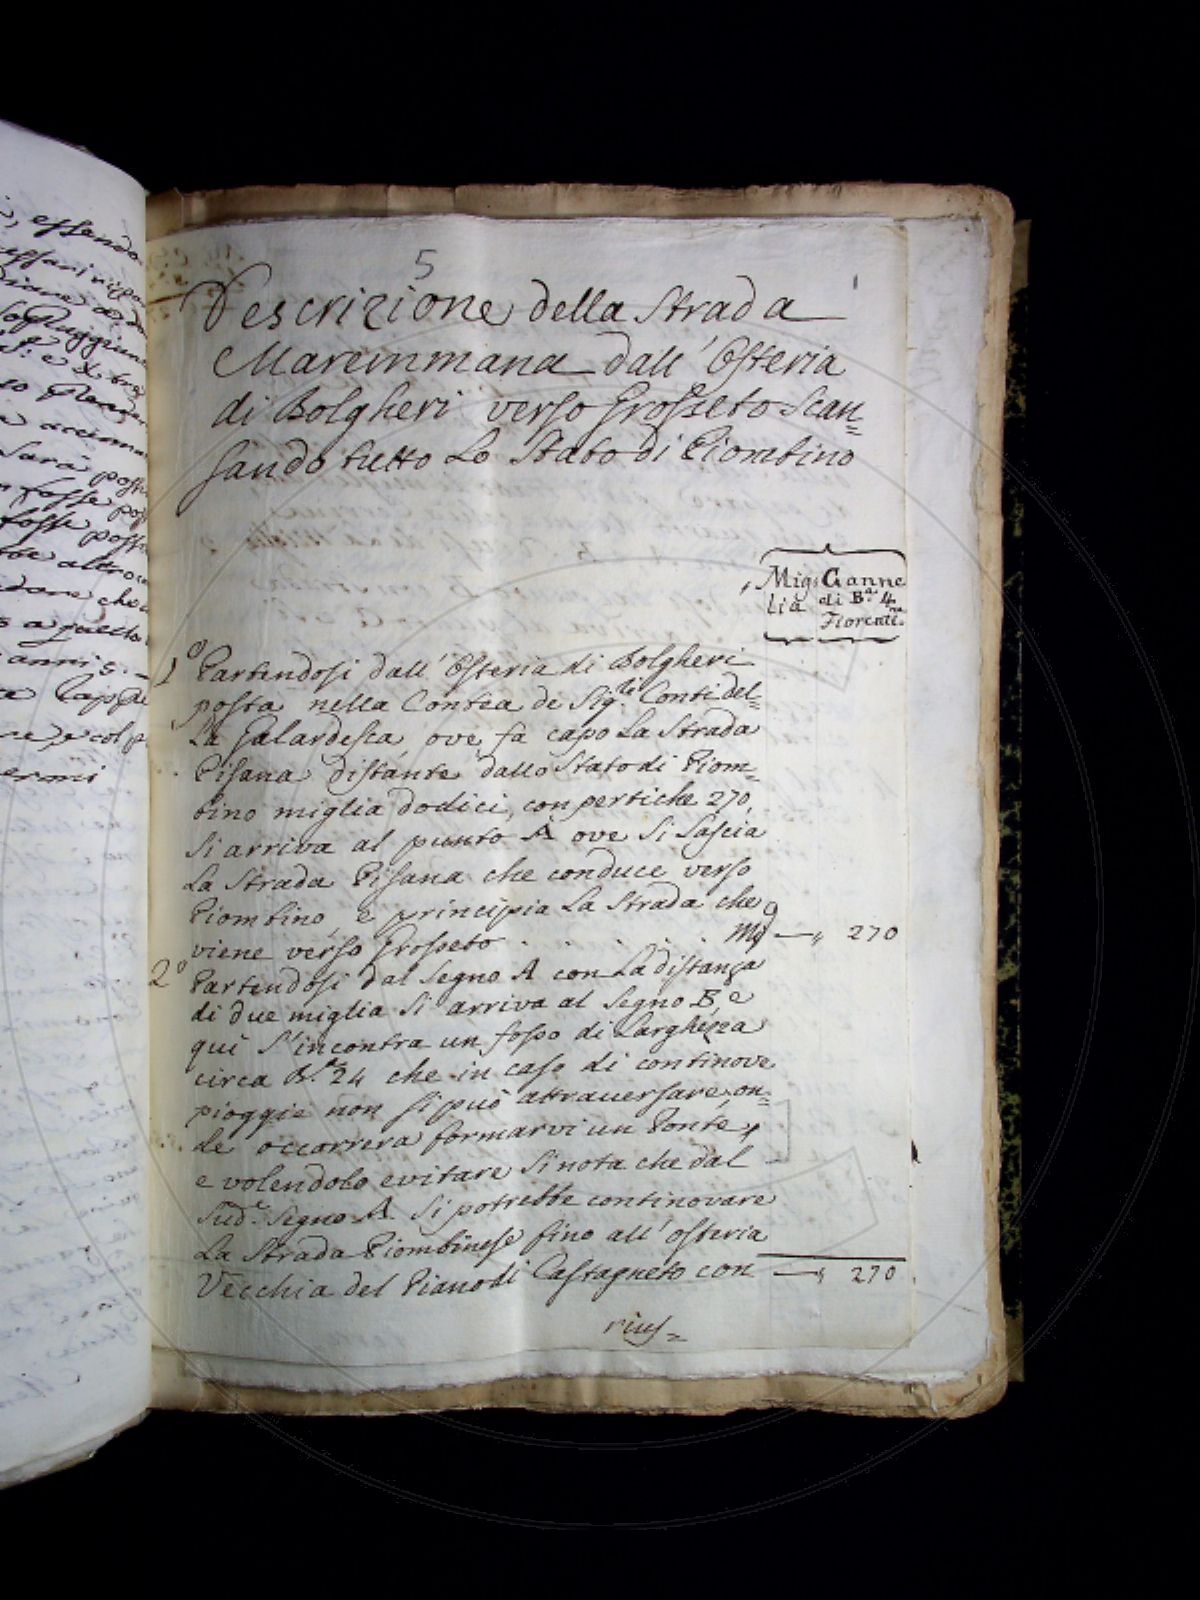 i, essendo
essari ripa
5
1
Descrizione della Strada
Maremmana dall' Osteria
di Bolgheri verso Grosseto Scan=
sando tutto Lo Stato di Piombino
Mig: Canne
lia di Ba 4
Fiorenti.ne
1o Partendosi dall' Osteria di Bolgheri
posta nella Contea de Sig.ri Conti del=
La Galardesca, ove fà capo La Strada
Pisana distante dallo Stato di Piom=
bino miglia dodici, con pertiche 270,
Si arriva al punto A ove Si Lascia
La Strada Pisana che conduce verso
Piombino, e principia La Strada che
viene verso Grosseto . . . Mg — „ 270
2o Partendosi dal Segno A con La distanza
di due miglia Si arriva al Segno B, e
qui S'incontra un fosso di Larghezza
circa B.a 24 che in caso di continove
pioggie non si può attraversare, on=
de occorrera formarvi un Ponte,
e volendolo evitare Si nota che dal
Sud.o Segno A Si potrebbe continovare
La Strada Piombinese fino all' osteria
Vecchia del Piano di Castagneto con — „ 270
rius=
sarà poss
fosse pos
fosse poss
altro
dare che
a questo
anni 5.
e colp